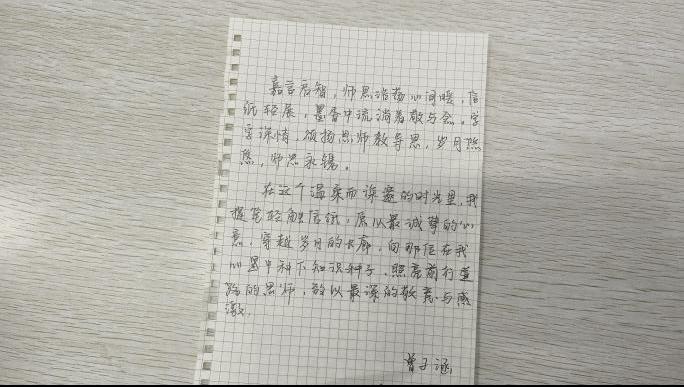 嘉言启智，师恩浩荡心间暖，信
纸轻展，墨香中流淌着敬与念。字
字深情，颂扬恩师教导恩，岁月悠
悠，师恩永铭。
在这个温柔而深邃的时光里，我
提笔轻触信纸，愿以最诚挚的心
意，穿越岁月的长廊，向那位在我
心里中种下知识种子，照亮前行道
路的恩师，致以最深的敬意与感
激。
曾子涵